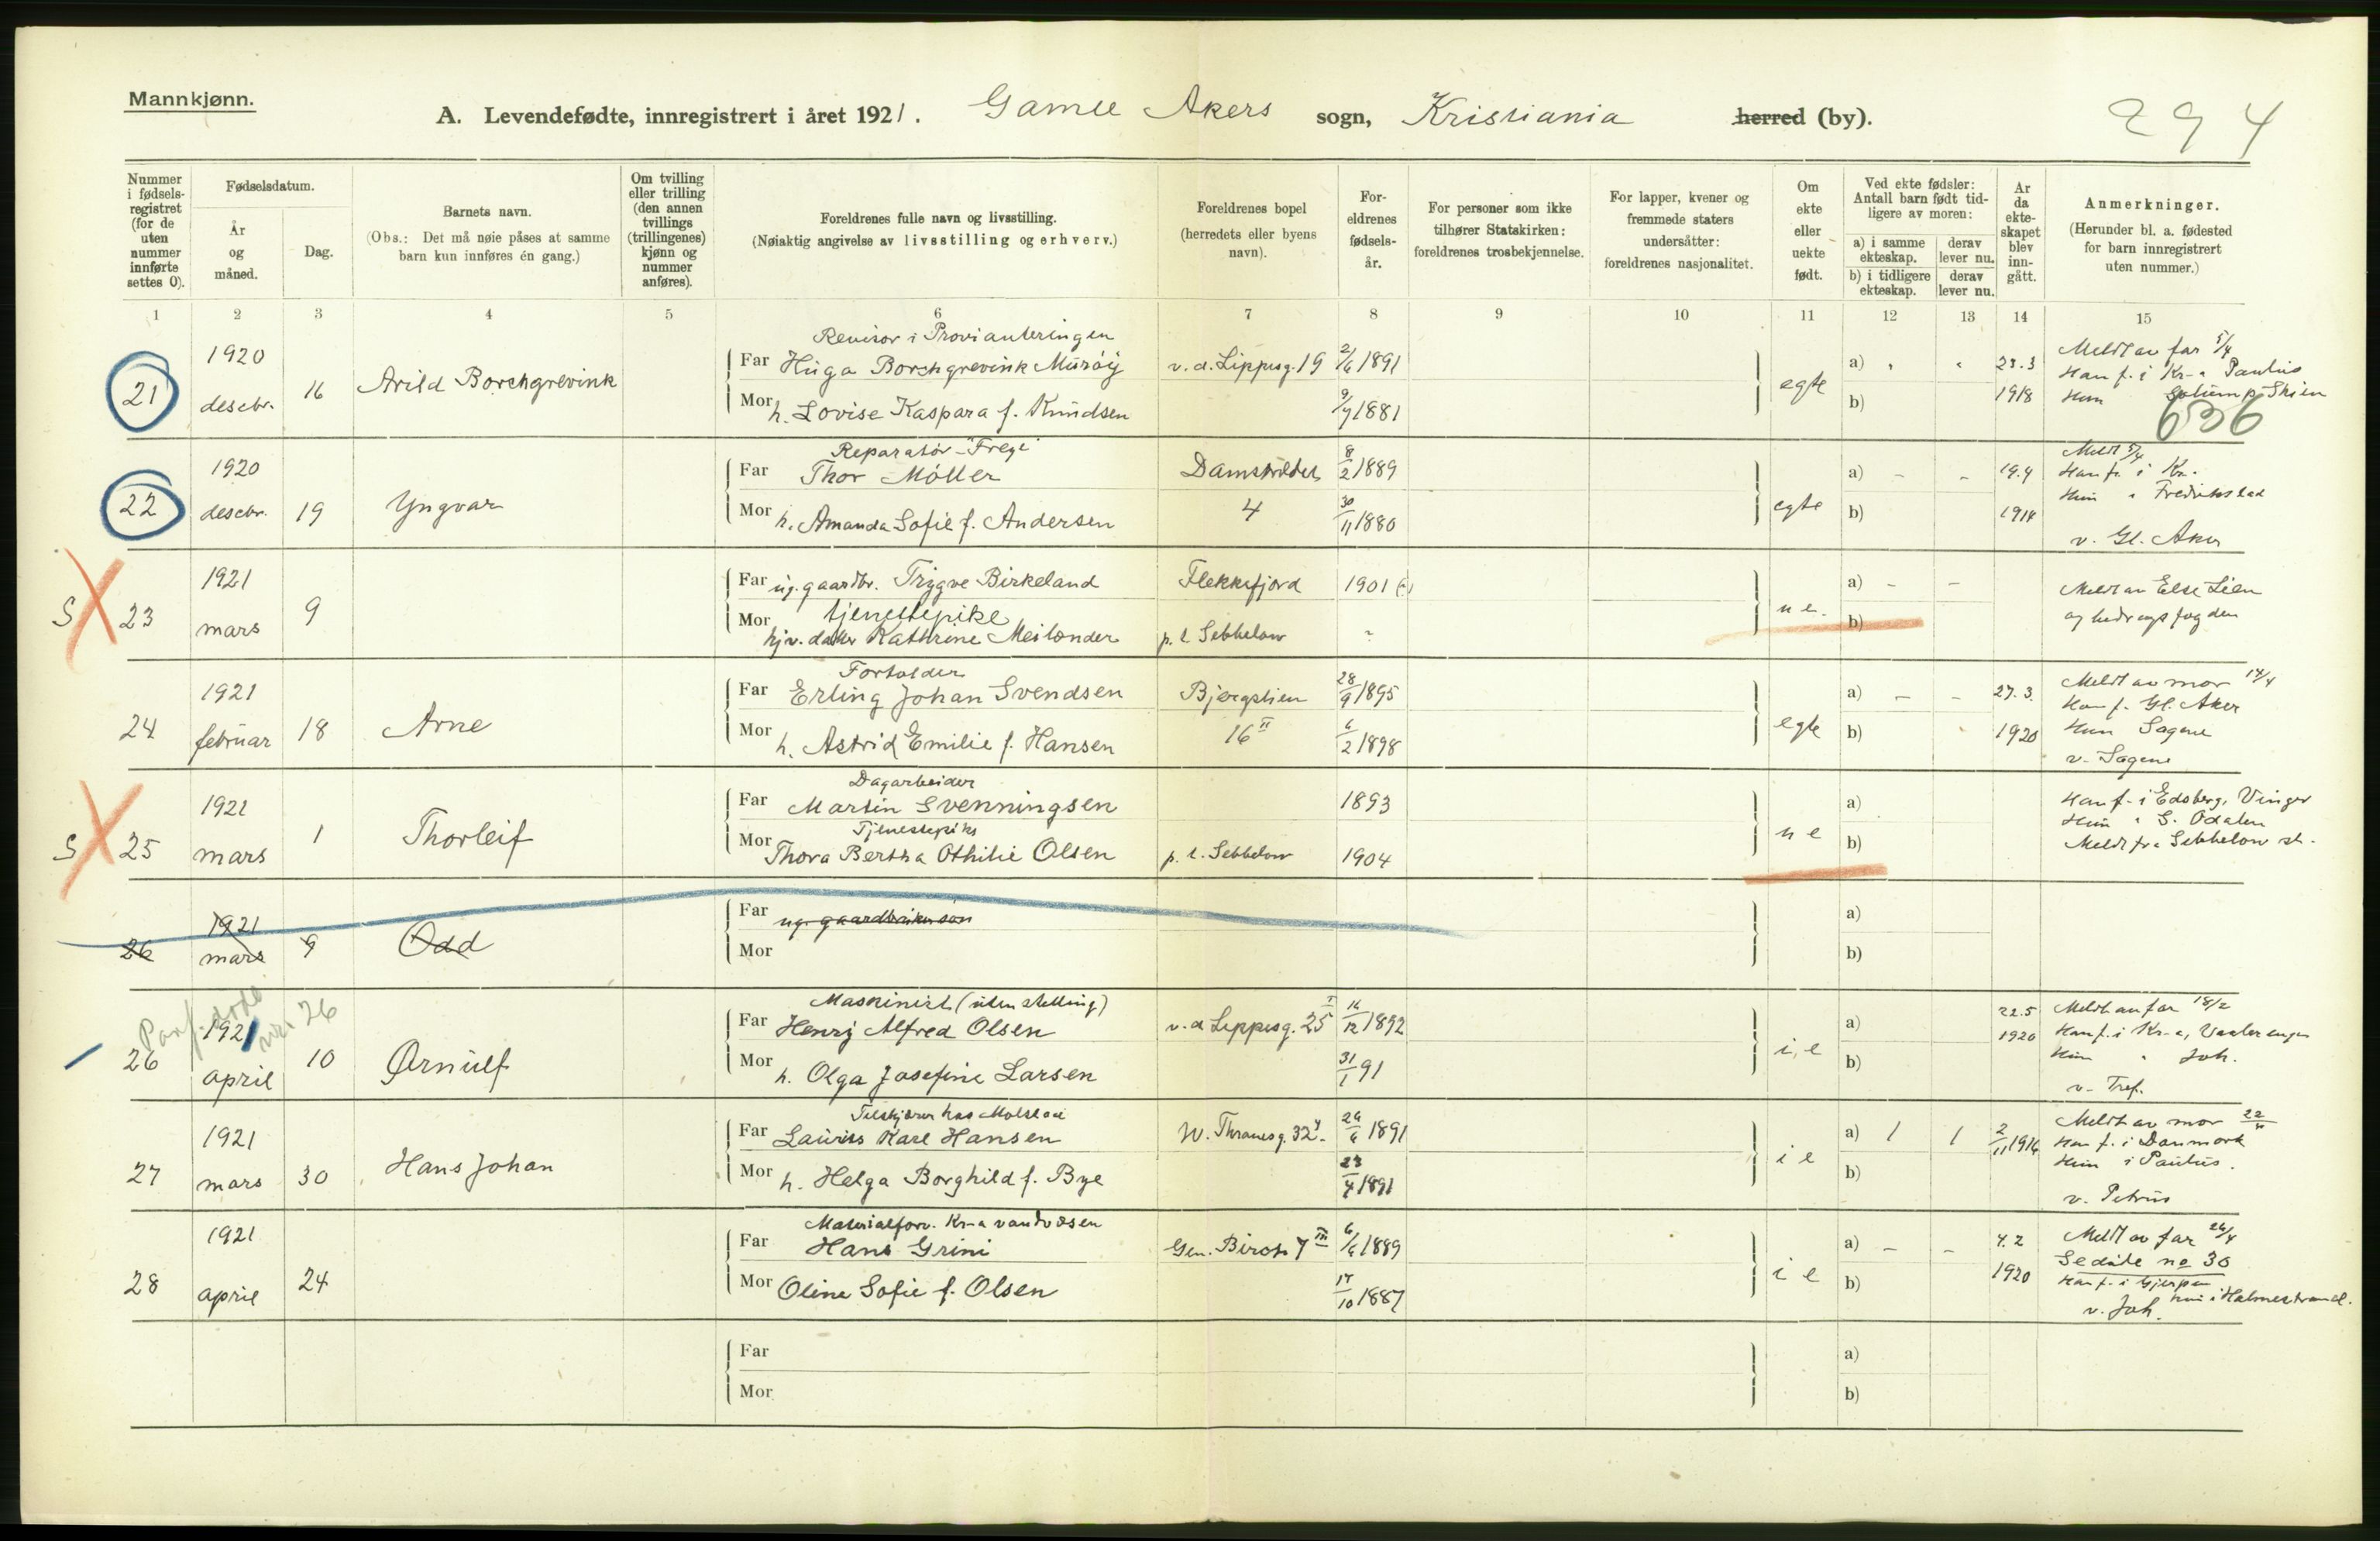 Mannkjønn.
A. Levendefødte, innregistrert i året 1921. Gamle Akers sogn, Kristiania herred (by).
294
Nummer i fødselsregistret (for de uten nummer innførte settes 0).
Fødselsdatum.
År og måned.
Dag.
Barnets navn.
(Obs.: Det må nøie påses at samme barn kun innføres én gang.)
Om tvilling eller trilling (den annen tvillings (trillingenes) kjønn og nummer anføres).
Foreldrenes fulle navn og livsstilling.
(Nøiaktig angivelse av livsstilling og erhverv.)
Foreldrenes bopel (herredets eller byens navn).
Foreldrenes fødselsår.
For personer som ikke tilhører Statskirken: foreldrenes trosbekjennelse.
For lapper, kvener og fremmede staters undersåtter: foreldrenes nasjonalitet.
Om ekte eller uekte født.
Ved ekte fødsler: Antall barn født tidligere av moren:
a) i samme ekteskap.
derav lever nu.
b) i tidligere ekteskap.
derav lever nu.
År da ekteskapet blev inngått.
Anmerkninger.
(Herunder bl. a. fødested for barn innregistrert uten nummer.)
1 2 3 4 5 6 7 8 9 10 11 12 13 14 15
21 1920 desebr. 16 Arild Borchgrevink
Revisor i Provianteringen
Far Hugo Borchgrevink v. d. Lippesg. 19 2/6 1891
Mor h. Lovise Kaspara f. Knudsen 9/7 1881
egte a) b) 23.3 1918
Meldt av far 5/4
Han f. i Kr-a Paulus
Hun Solum p. Skien
636
22 1920 desebr. 19 Yngvar
Reparatør
Far Thor Møller Damstrædet 8/2 1889
Mor h. Amanda Sofie f. Andersen 4 30/11 1880
egte a) - - b) 19.4 1914
Meldt 5/4
Han f. i Kr.
Hun " Fredrikstad
v. Gl. Aker
S 23 1921 mars 9
Far ug. gaardbr. Trygve Birkeland Flekkefjord 1901
tjenestepike
Mor Kathrine Meilænder p. t. Sebbelow
u e. a) - - b)
Meldt av Else Lien
24 1921 februar 18 Arne
Far Erling Johan Svendsen Bjergstien 28/9 1895
Mor h. Astrid Emilie f. Hansen 16 II 6/2 1898
egte a) - - b) 27.3. 1920
Meldt av mor 14/4
Han f. Gl. Aker
Hun Sagene
v. Sagene
S 25 1921 mars 1 Thorleif
Dagarbeider
Far Martin Svenningsen 1893
Tjenestepike
Mor Thora Bertha Othilie Olsen p. t. Sebbelow 1904
u e a) b)
Han f. i Edsberg, Vinger
Hun " S. Odalen
Meldt fra Sebbelow st.
26 1921 mars 9 Odd
Far ug. gaardbrukersøn
Mor
a) b)
26 1921 april 10 Ørnulf
nr. 26
Maskinist (uten stilling)
Far Henry Alfred Olsen v. d Lippesg. 25 I 16/12 1892
Mor h. Olga Josefine Larsen 31/1 91
i, e a) b) 22.5 1920
Meldt av far 18/2
Han f. i Kr-a, Vaalerengen
Hun " Joh.
v. Tref.
27 1921 mars 30 Hans Johan
Far Laurits Karl Hansen W. Thranesg. 32 24/6 1891
Mor h. Helga Borghild f. Bye 23/4 1891
i e a) 1 1 b) 2/11 1916
Meldt av mor 22/4
Han f. i Danmark
Hun i Paulus.
v. Petrus
28 1921 april 24
Materialforv. Kr-a vandvæsen
Far Hans Grini Gen. Birchs 7 III 6/6 1889
Mor Oline Sofie f. Olsen 17/10 1887
i e a) - - b) 4.2 1920
Meldt av far 26/4
Se dåte no 30
Han f. i Gjerpen
Hun i Holmestrand.
v. Joh.
Far
Mor
a)
b)